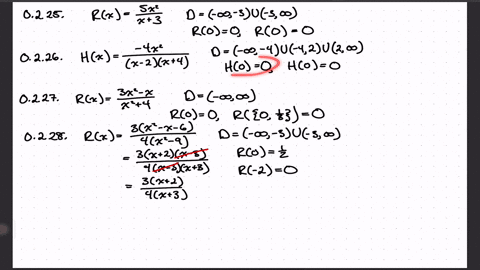 0.2.25. R(x) = 5x²/(x+3) D = (-∞,-3)∪(-3,∞)
R(0)=0, R(0)=0
0.2.26. H(x) = -4x²/((x-2)(x+4)) D = (-∞,-4)∪(-4,2)∪(2,∞)
H(0)=0, H(0)=0
0.2.27. R(x) = (3x²-x)/(x²+4) D = (-∞,∞)
R(0)=0, R({0,⅓})=0
0.2.28. R(x) = 3(x²-x-6)/(4(x²-9)) D = (-∞,-3)∪(-3,∞)
= 3(x+2)(x-3)/(4(x-3)(x+3)) R(0)=½
R(-2)=0
= 3(x+2)/(4(x+3))